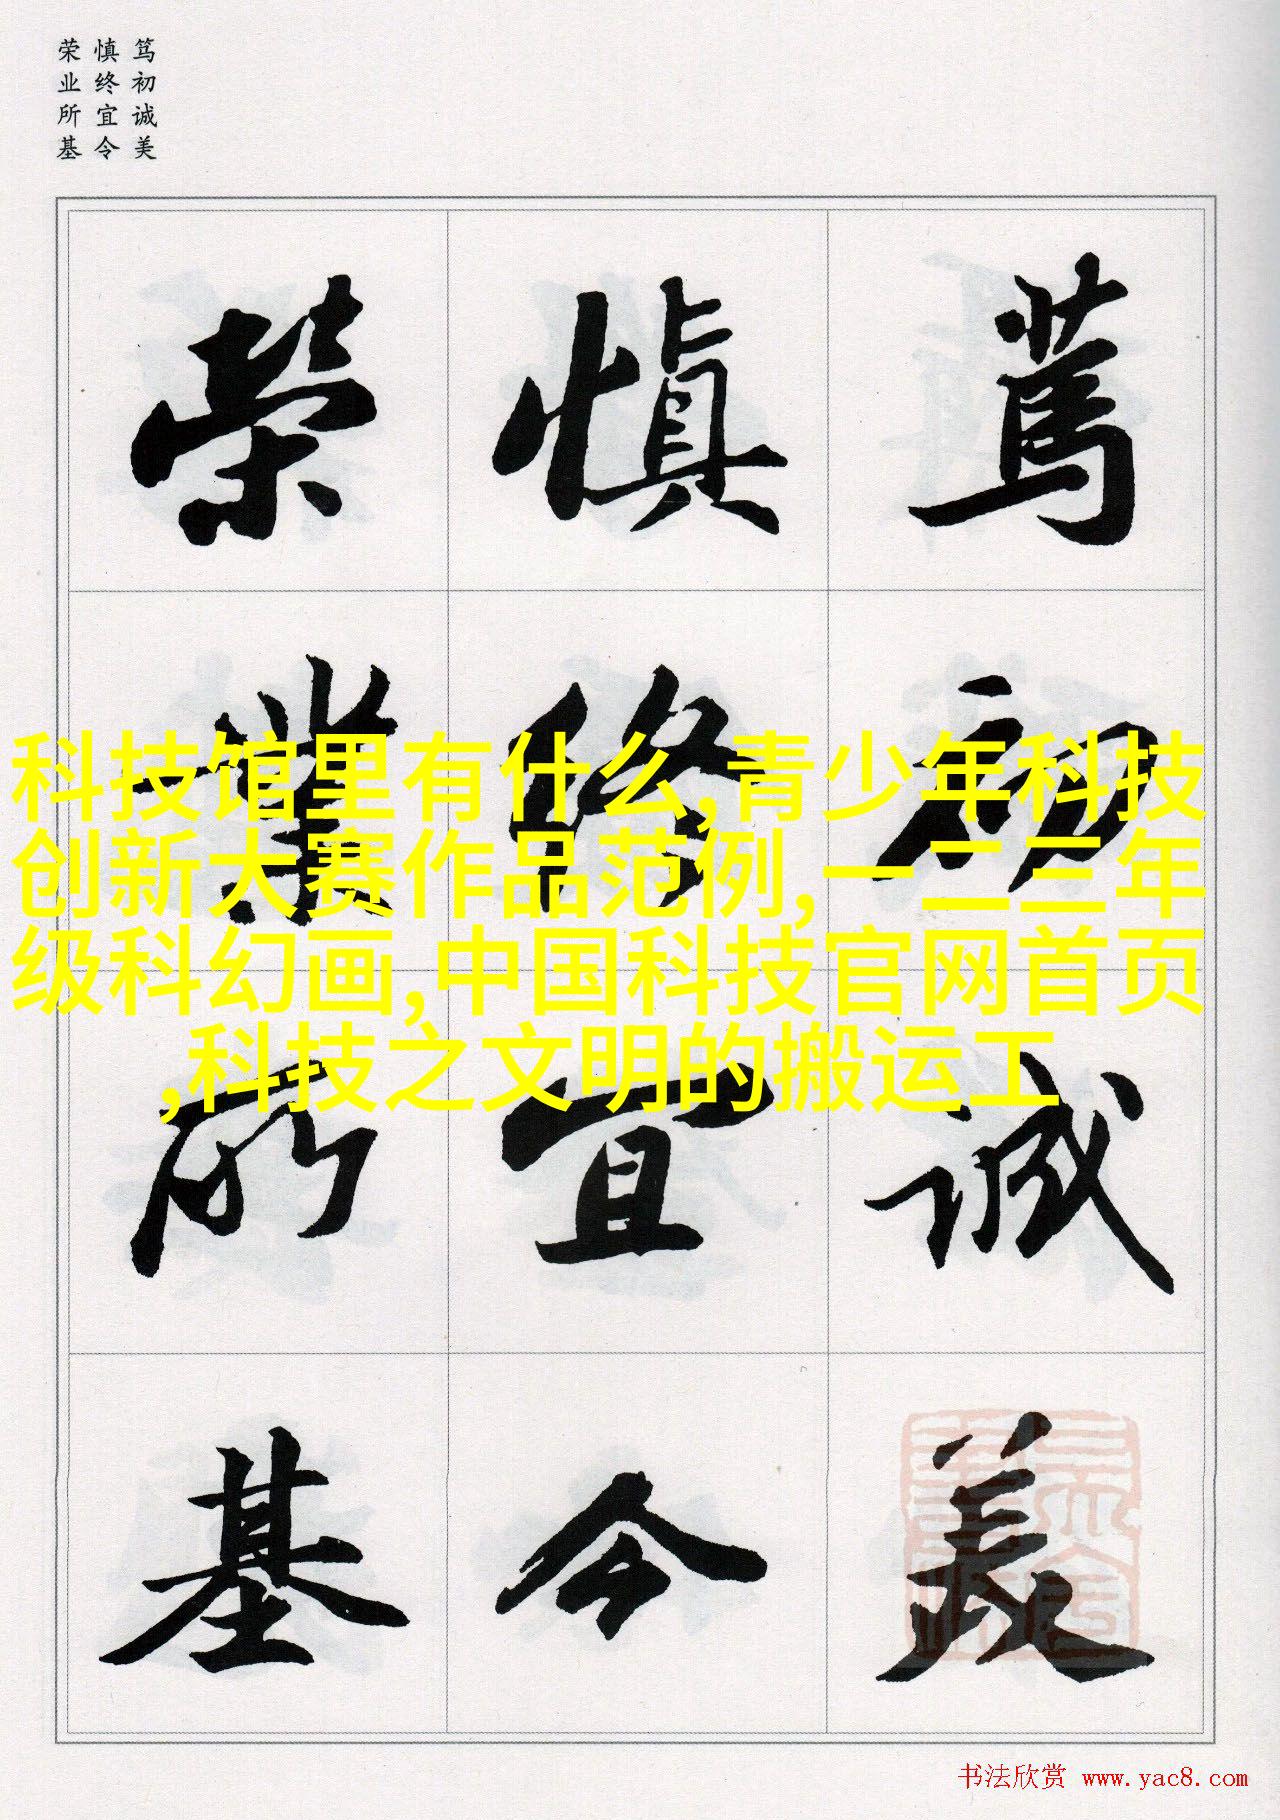 笃初诚美
慎终宜令
荣业所基
篤初诚美
慎终宜令
荣業所基
科技馆里有什么,青少年科技
创新大赛作品范例,一二三年
级科幻画,中国科技官网首页
,科技之文明的搬运工
书法欣赏 www.yac8.com